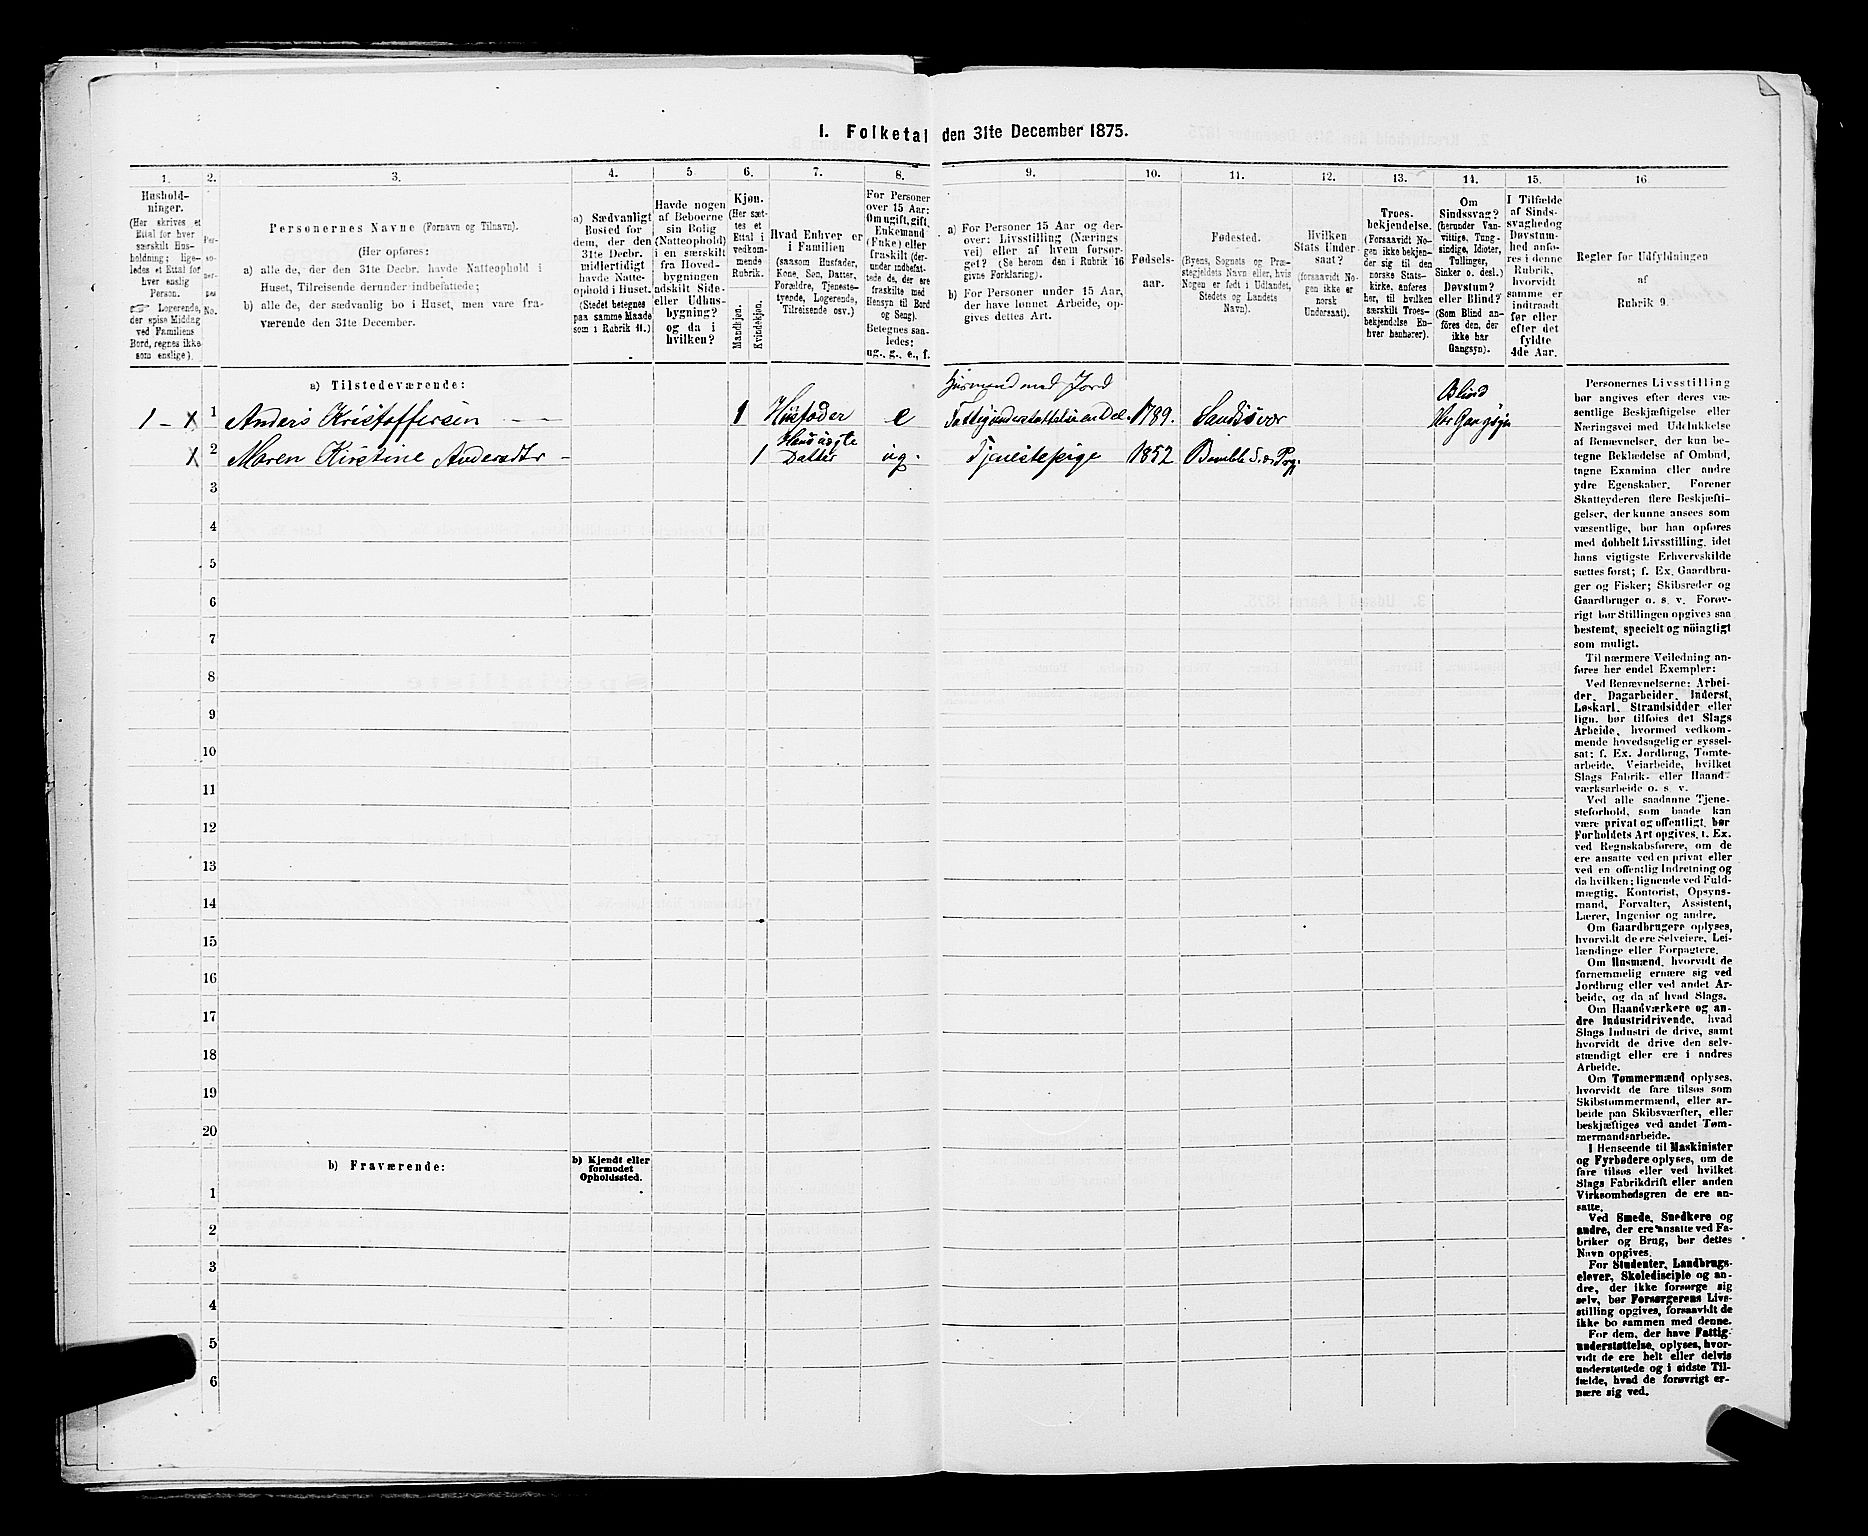 1. Folketal den 31te December 1875.
1.
Hushold-
ninger.
(Her skrives et
Ettal for hver
særskilt Hus-
holdning; lige-
ledes et Ettal for
hver enslig
Person.
☞ Logerende,
der spise Middag
ved Familiens
Bord, regnes ikke
som enslige).
2.
Per-
soner-
nes
No.
3.
Personernes Navne (Fornavn og Tilnavn).
(Her opføres:
a) alle de, der den 31te Decbr. havde Natteophold i
Huset, Tilreisende derunder indbefattede;
b) alle de, der sædvanlig bo i Huset, men vare fra-
værende den 31te December.
4.
a) Sædvanligt
Bosted for
dem, der den
31te Decbr.
midlertidigt
havde Natte-
ophold i Huset.
(Stedet betegnes
paa samme Maade
som i Rubrik 11.)
5.
Havde nogen
af Beboerne
sin Bolig
(Natteophold)
i en særskilt
fra Hoved-
bygningen
adskilt Side-
eller Udhus-
bygning?
og da i
hvilken?
6.
Kjøn.
(Her sæt-
tes et
Ettal i
vedkom-
mende
Rubrik.
Mandkjøn.
Kvindekjøn.
7.
Hvad Enhver er
i Familien
(saasom Husfader,
Kone, Søn, Datter,
Forældre, Tjeneste-
tyende, Logerende,
Tilreisende osv.)
8.
For Personer
over 15 Aar:
Om ugift, gift,
Enkemand
(Enke) eller
fraskilt (der-
under indbefat-
tede de, der ere
fraskilte med
Hensyn til Bord
og Seng).
Betegnes saa-
ledes:
ug., g., e., f.
9.
a) For Personer 15 Aar og der-
over: Livsstilling (Nærings
vei) eller af hvem forsør-
get? (Se herom den i Rubrik 16
givne Forklaring).
b) For Personer under 15 Aar,
der have lønnet Arbeide, op-
gives dettes Art.
10.
Fødsels-
aar.
11.
Fødested.
(Byens, Sognets og Præ-
stegjeldets Navn eller, hvis
Nogen er født i Udlandet,
Stedets og Landets
Navn).
12.
Hvilken
Stats Under
saat?
(forsaavidt No-
gen ikke er
norsk
Undersaat).
13.
Troes-
bekjendelse.
(Forsaavidt No-
gen ikke bekjen-
der sig til den
norske Stats-
kirke, anføres
her, til hvilken
særskilt Troes-
bekjendelse En-
hver henhører).
14.
Om
Sindssvag?
(herunder Van-
vittige, Tung-
sindige, Idioter,
Tullinger,
Sinker o. desl.)
Døvstum?
eller Blind?
(Som Blind an-
føres den, der
ikke har
Gangsyn).
15.
I Tilfælde
af Sinds-
svaghed og
Døvstum-
hed anfø-
res i denne
Rubrik,
hvorvidt
samme er
indtraadt
før eller
efter det
fyldte
4de Aar.
16
Regler for Udfyldningen
af
Rubrik 9.
a) Tilstedeværende:
Husmand med Jord
Blind
1 - x 1 Anders Kristoffersen 1 Husfader e Fattigunderstøttelse en Del. 1789. Sandsvær Har Gangsyn
Hans ugte
x 2 Maren Kirstine Andersdtr 1 Datter ug. Tjenestepige 1852 Bamble S. & Prg.
3
4
5
6
7
8
9
10
11
12
13
14
15
16
17
18
19
20
b) Fraværende:
b) Kjendt eller
formodet
Opholdssted.
1
2
3
4
5
6
Personernes Livsstilling
bør angives efter deres væ-
sentlige Beskjæftigelse eller
Næringsvei med Udelukkelse
af Benævnelser, der kun be-
tegne Bekledelse af Ombud,
tagne Examina eller andre
ydre Egenskaber. Forener
Skatteyderen flere Beskjæfti-
gelser, der kunne ansees som
væsentlige, bør han opføres
med dobbelt Livsstilling, idet
hans vigtigste Erhvervskilde
sættes først; f. Ex. Gaardbru-
ger og Fisker; Skibsreder og
Gaardbruger o. s. v. Forøv-
rigt bør Stillingen opgives saa
bestemt, specielt og nöiagtigt
som muligt.
Til nærmere Veiledning an-
føres her endel Exempler:
Ved Benævnelserne: Arbei-
der, Dagarbeider, Inderst,
Løskarl, Strandsidder eller
lign. bør tilføies det Slags
Arbeide, hvormed vedkom-
mende hovedsagelig er syssel-
sat; f. Ex. Jordbrug, Tomte-
arbeide, Veiarbeide, hvilket
Slags Fabrik- eller Haand-
værksarbeide o. s. v.
Ved alle saadanne Tjene-
steforhold, som baade kan
være privat og offentligt, bør
Forholdets Art opgives, t. Ex.
ved Regnskabsførere, om de
ere ansatte ved en privat eller
ved en offentlig Indretning og
da hvilken; lignende ved Fuld-
mægtig, Kontorist, Opsyns-
mand, Forvalter, Assistent,
Lærer, Ingeniør og andre.
Om Gaardbrugere oplyses,
hvorvidt de ere Selveiere, Lei-
lændinge eller Forpagtere.
Om Husmænd, hvorvidt de
fornemmelig ernære sig ved
Jordbrug eller ved andet Ar-
beide, og da af hvad Slags.
Om Haandværkere og an-
dre Industridrivende, hvad
Slags Industri de drive, samt
hvorvidt de drive den selv-
stændigt eller ere i andres
Arbeide.
Om Tømmermænd oplyses,
hvorvidt de fare tilsøs som
Skibstømmermænd, eller ar-
beide paa Skibsværfter, eller
beskjæftiges ved andet Tøm-
mermandsarbeide.
I Henseende til Maskinister
og Fyrbødere oplyses, om de
fare tilsøs eller ved hvilket
Slags Fabrikdrift eller anden
Virksomhedsgren de ere an-
satte.
Ved Smede, Snedkere og
andre, der ere ansatte ved Fa-
briker og Brug, bør dettes
Navn opgives.
For Studenter, Landbrugs-
elever, Skoledisciple og an-
dre, der ikke forsørge sig
selv, bør Forsørgerens Livs-
stilling opgives, forsaavidt de
ikke bo sammen med denne.
For dem, der have Fattig-
understøttelse, oplyses, hvor-
vidt de ere helt eller delvis
understøttede og i sidste Til-
fælde, hvad de forøvrigt er-
nære sig ved.